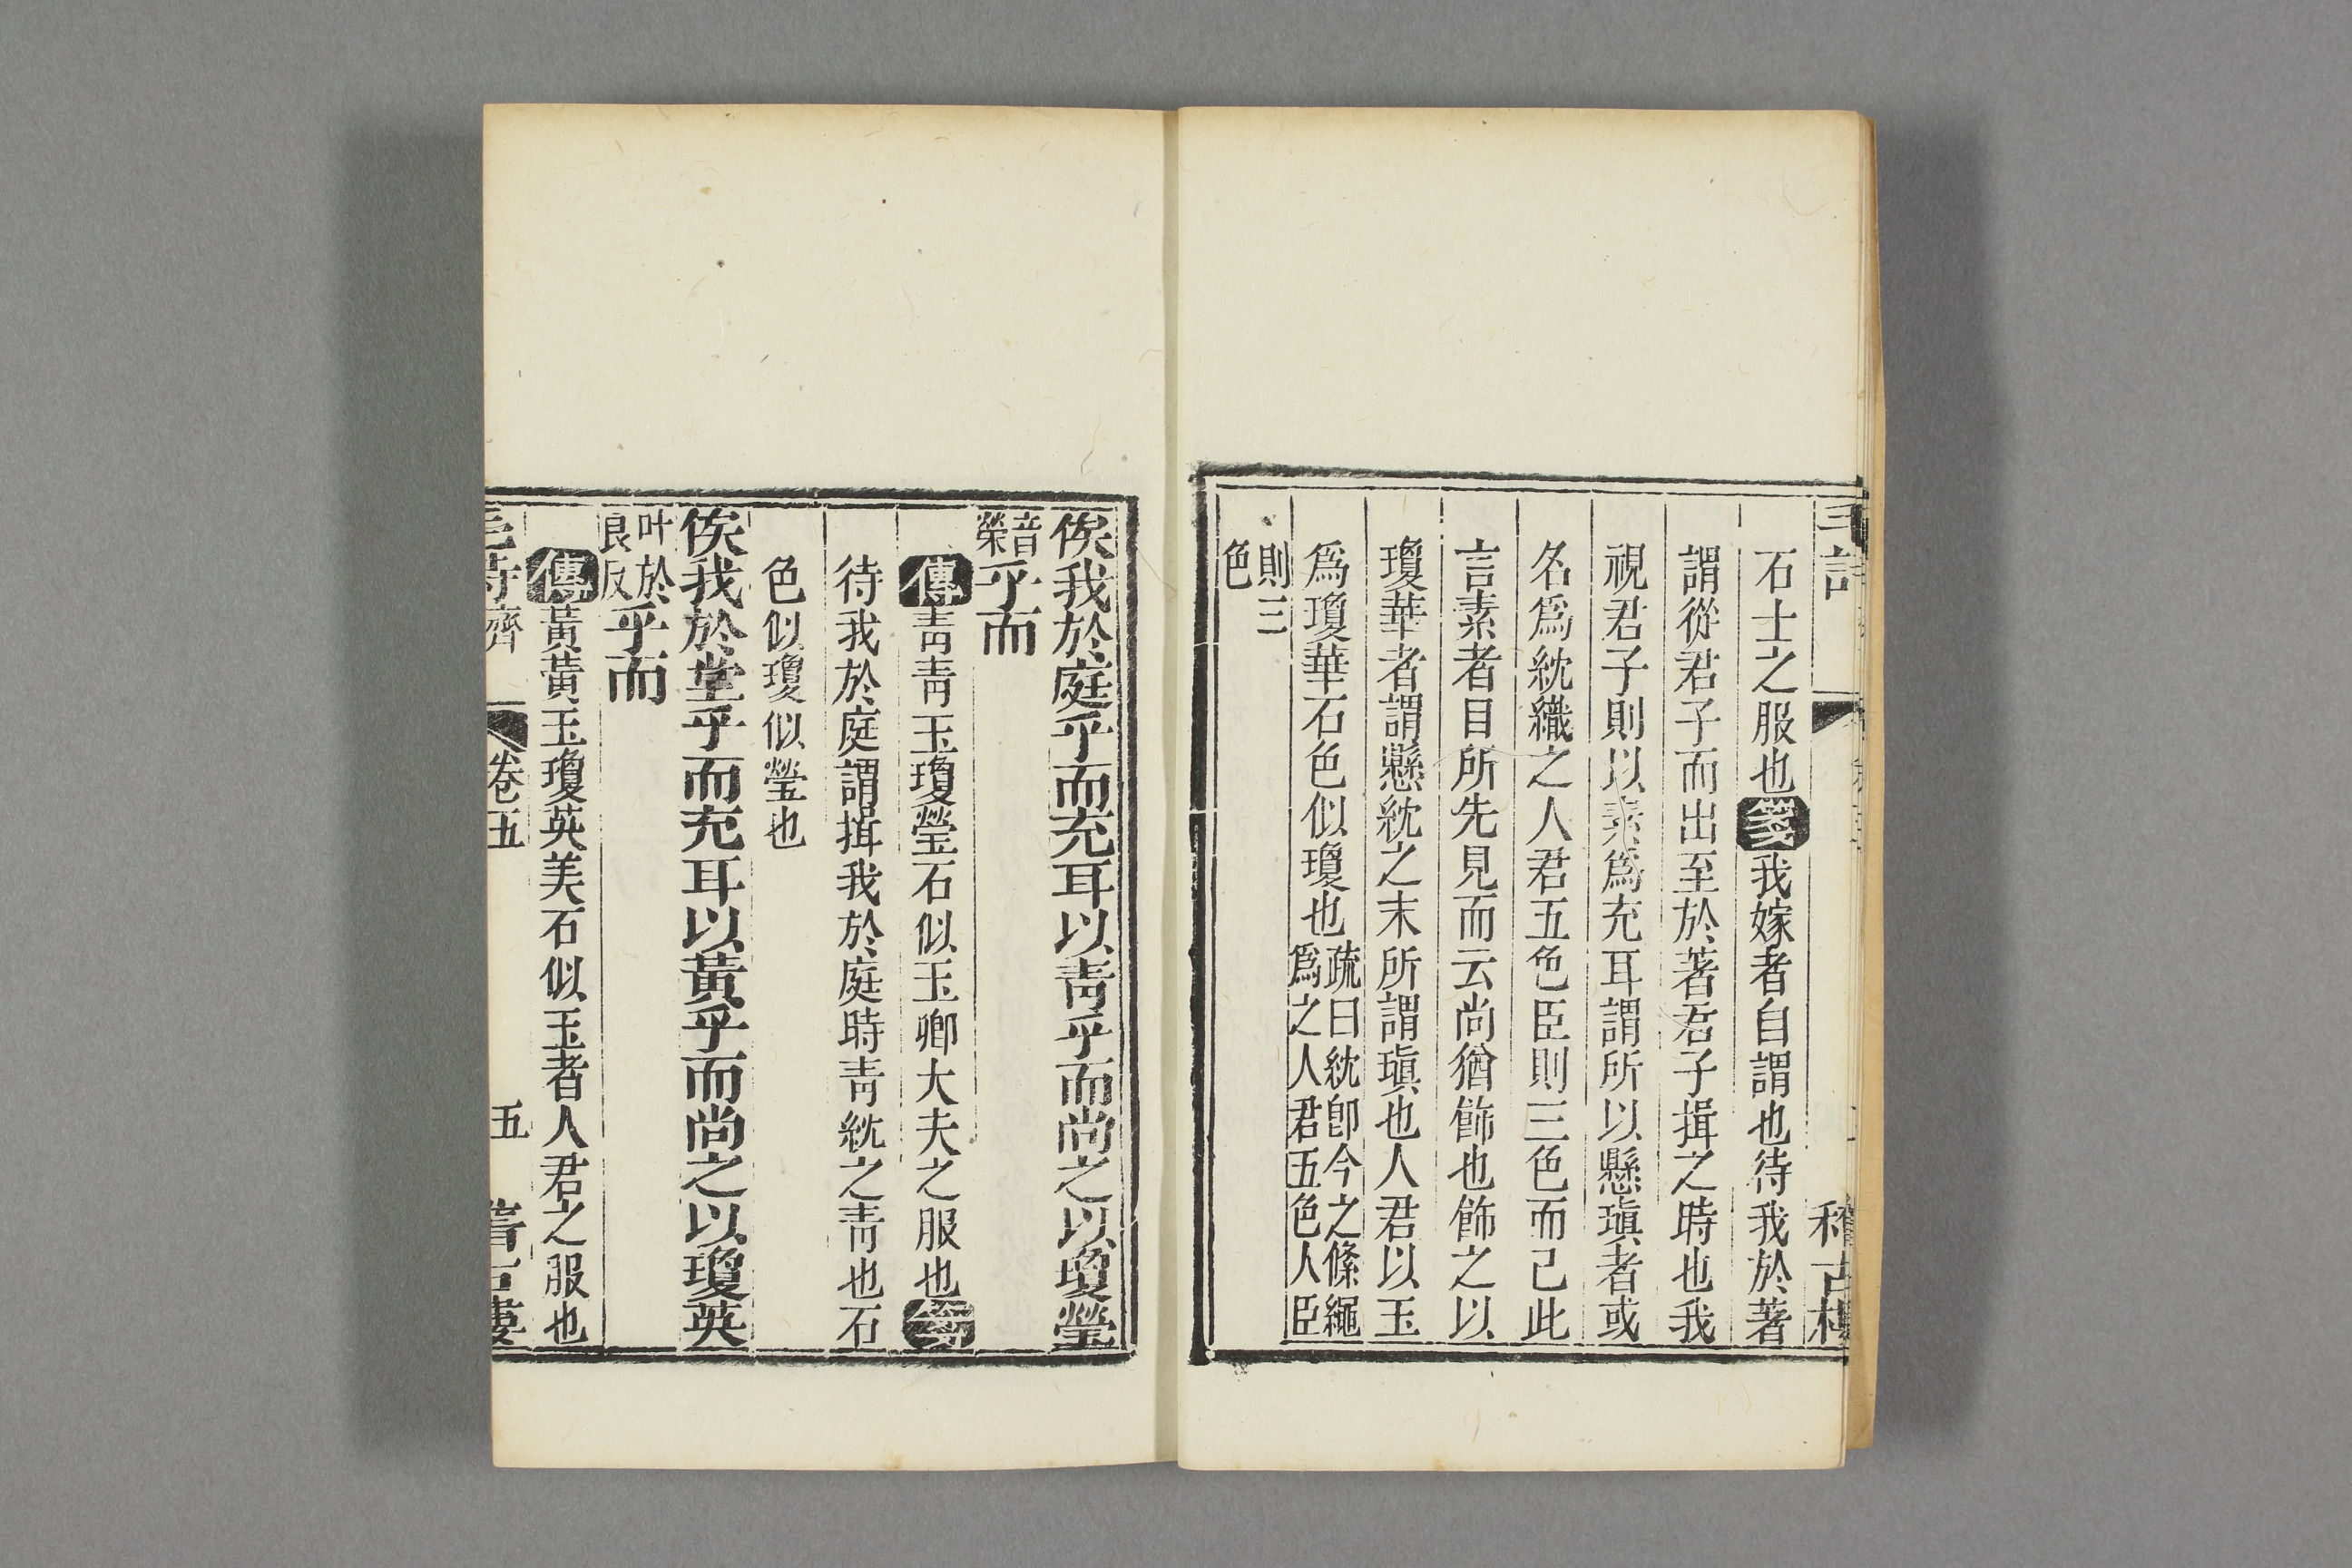 石士之服也箋我嫁者自謂也待我於著
謂從君子而出至於著君子揖之時也我
視君子則以素爲充耳謂所以懸瑱者或
名爲紞織之人君五色臣則三色而己此
言素者目所先見而云尚猶飾也飾之以
瓊華者謂懸紞之末所謂瑱也人君以玉
爲瓊華石色似瓊也疏曰紞卽今之絛繩
爲之人君五色人臣
則三
色
俟我於庭乎而充耳以靑乎而尚之以瓊瑩
音
榮乎而
傳靑靑玉瓊瑩石似玉卿大夫之服也箋
待我於庭謂揖我於庭時靑紞之靑也石
色似瓊似瑩也
俟我於堂乎而充耳以黃乎而尚之以瓊英
叶於
良反乎而
傳黃黃玉瓊英美石似玉者人君之服也
毛詩齊 卷五 五 稽古樓